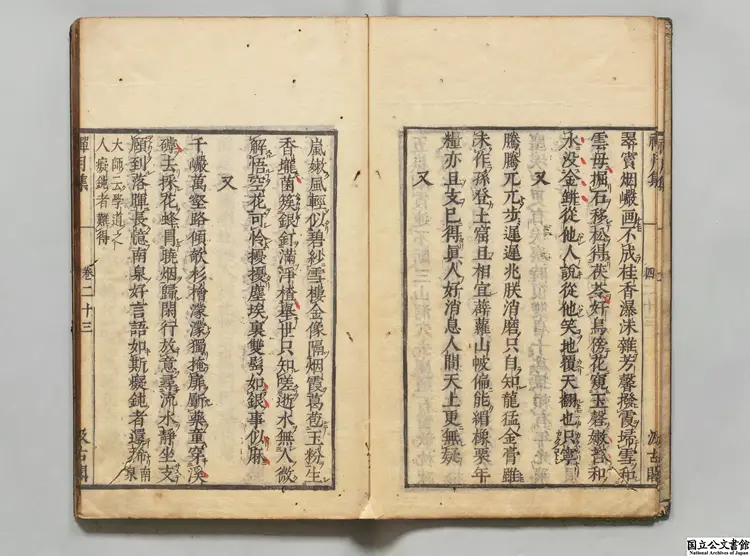 禪月集
汲古閣
翠竇烟巖画不成桂香瀑沫雜芳馨撥霞掃雪和
雲母掘石移松得茯苓好鳥傍花窺玉磬嫩苔和
水没金缾從他人說從他笑地覆天翻也只寧
又
騰騰兀兀步遲遲兆朕消磨只自知龍猛金膏雖
未作孫登土窟且相宜薜蘿山帔偏能緝橡栗年
糧亦且支已得真人好消息人間天上更無疑
又
嵐嫩風輕似碧紗雪樓金像隔烟霞葛苞玉粉生
香壠菌簇銀釘滿淨楂舉世只知嗟逝水無人微
解悟空花可怜擾擾塵埃裏雙鬢如銀事似麻
又
千巖萬壑路傾欹杉檜濛濛獨掩扉劚藥童穿溪
罅去採花蜂冐曉烟歸閑行放意尋流水靜坐支
頤到落暉長憶南泉好言語如斯癡鈍者還稀南泉
大師云學道之
人癡鈍者難得
禪月集
卷二十三
汲古閣
国立公文書館
National Archives of Japan